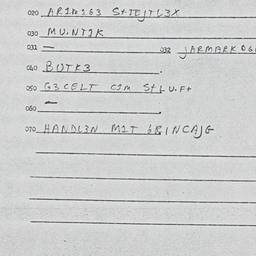 020 AR1M163 StTEJTL3X
030 MU.NTIK
031 — 032 JARMARK OG
040 BUTK3
050 G3CELT CIM StLU.Ft
060 —
070 HANDL3N MIT GRINCAJG